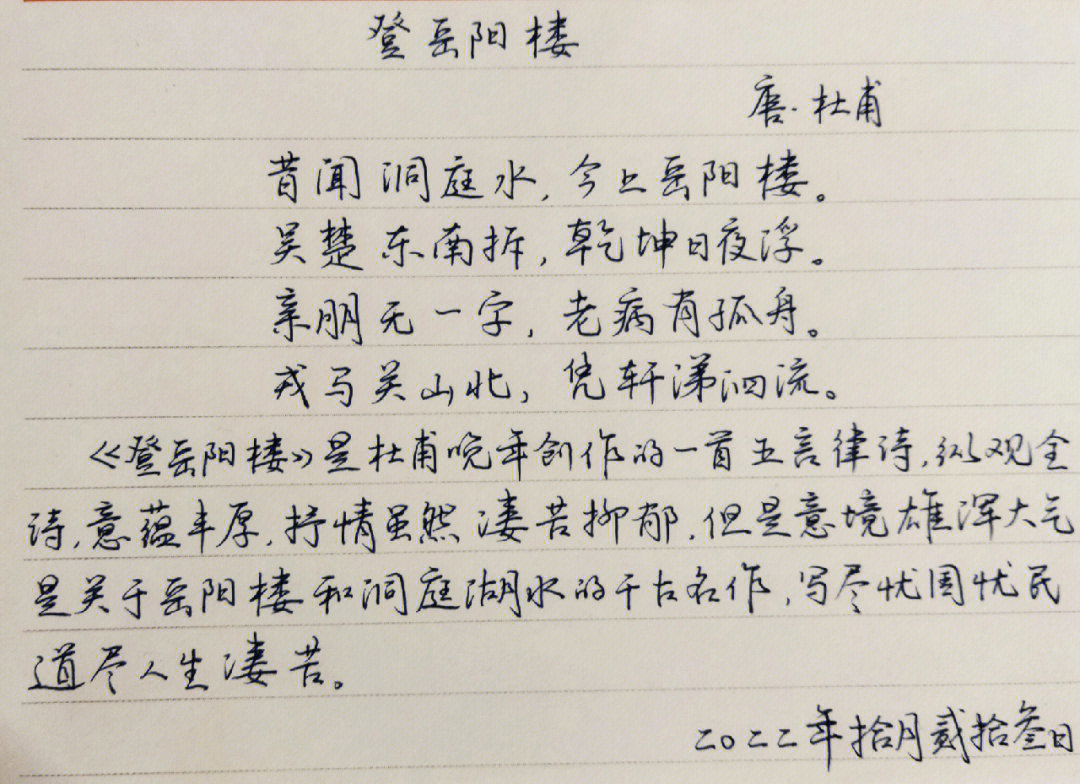 登岳阳楼
唐·杜甫
昔闻洞庭水,今上岳阳楼。
吴楚东南拆,乾坤日夜浮。
亲朋无一字,老病有孤舟。
戎马关山北,凭轩涕泗流。
《登岳阳楼》是杜甫晚年创作的一首五言律诗,纵观全
诗,意蕴丰厚,抒情虽然凄苦抑郁,但是意境雄浑大气
是关于岳阳楼和洞庭湖水的千古名作,写尽忧国忧民
道尽人生凄苦。
二〇二二年拾月贰拾叁日